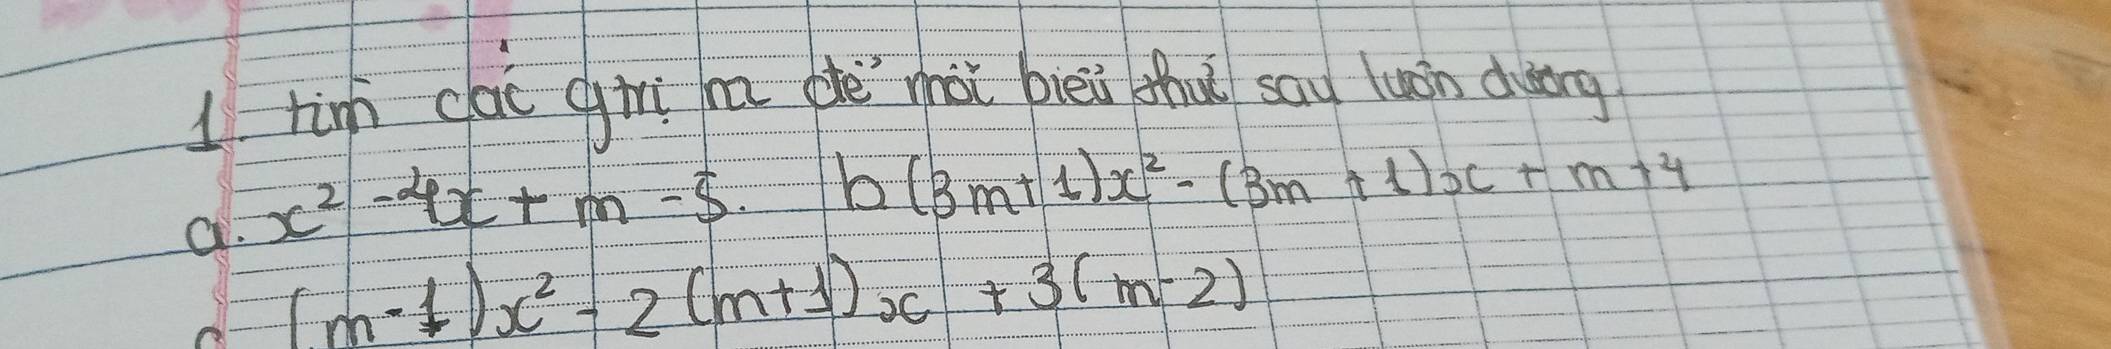 1. tìm các gtrị m để mỗi biểu thức sau luôn dương
a. x² - 4x + m - 5. b (3m + 1)x² - (3m + 1)x + m + 4
(m - 1)x² - 2(m + 1)x + 3(m - 2)